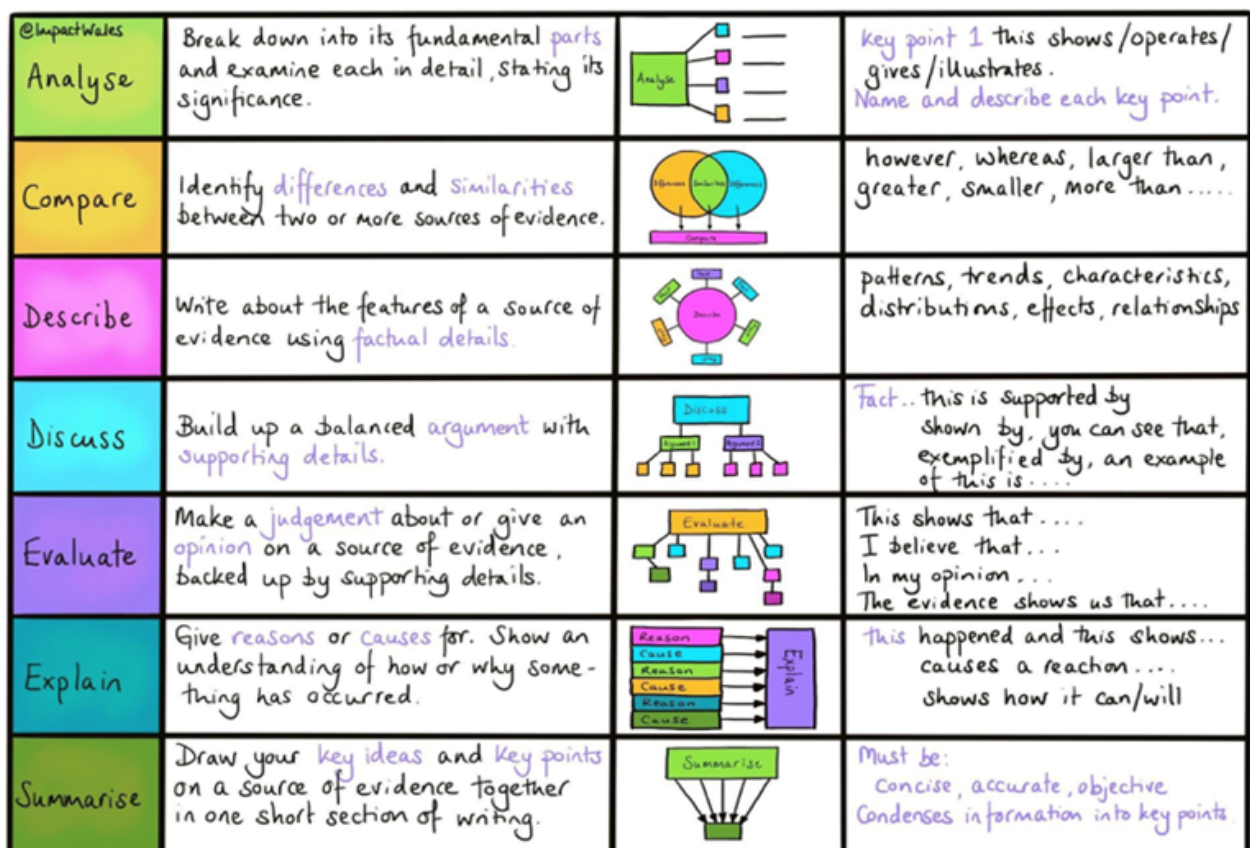 @ImpactWales
Analyse
Break down into its fundamental parts
and examine each in detail, stating its
significance.
Analyse
key point 1 this shows/operates/
gives/illustrates.
Name and describe each key point.
Compare
Identify differences and similarities
between two or more sources of evidence.
Differences
Similarities
Differences
Compare
however, whereas, larger than,
greater, smaller, more than.....
Describe
Write about the features of a source of
evidence using factual details.
Describe
patterns, trends, characteristics,
distributions, effects, relationships
Discuss
Build up a balanced argument with
supporting details.
Discuss
Argument 1
Argument 2
Fact.. this is supported by
shown by, you can see that,
exemplified by, an example
of this is....
Evaluate
Make a judgement about or give an
opinion on a source of evidence,
backed up by supporting details.
Evaluate
This shows that....
I believe that...
In my opinion...
The evidence shows us that....
Explain
Give reasons or causes for. Show an
understanding of how or why some-
thing has occurred.
Reason
Cause
Reason
Cause
Reason
Cause
Explain
this happened and this shows...
causes a reaction....
shows how it can/will
Summarise
Draw your key ideas and key points
on a source of evidence together
in one short section of writing.
Summarise
Must be:
Concise, accurate, objective
Condenses information into key points.